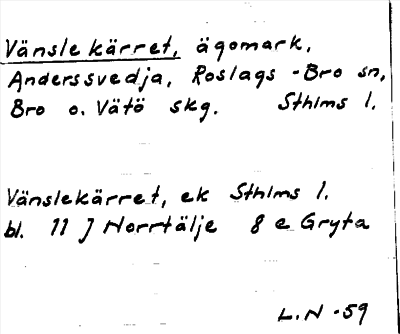 Vänslekärret, ägomark,
Anderssvedja, Roslags-Bro sn,
Bro o. Vätö skg. Sthlms l.
Vänslekärret, ek Sthlms l.
bl. 11 J Norrtälje 8 e Gryta
L.N -59